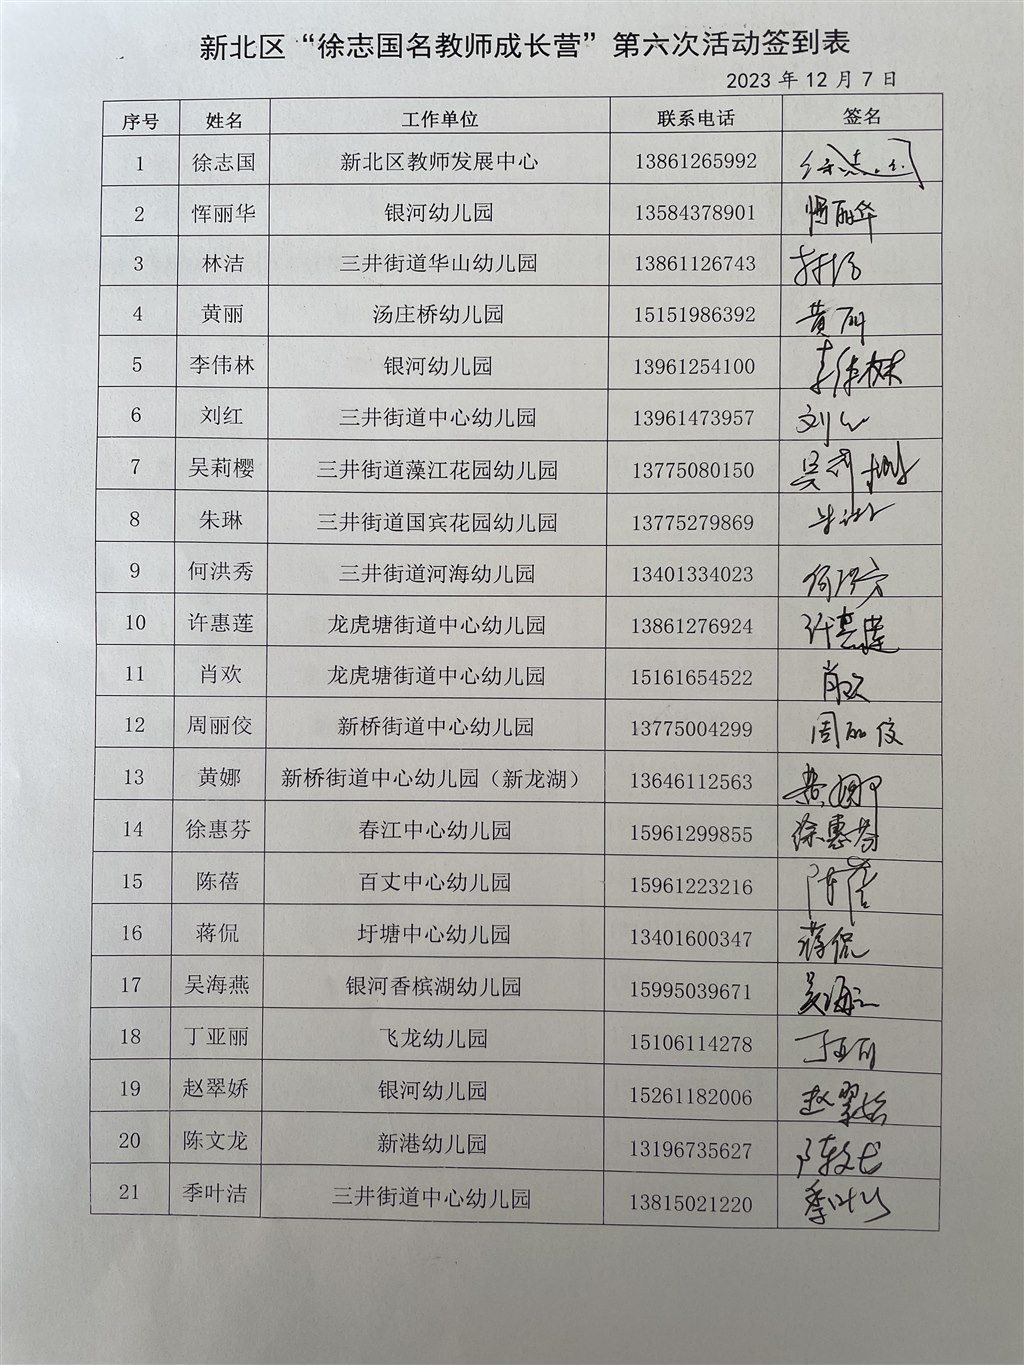 新北区“徐志国名教师成长营”第六次活动签到表
2023 年 12 月 7 日
序号 姓名 工作单位 联系电话 签名
1 徐志国 新北区教师发展中心 13861265992 徐志国
2 恽丽华 银河幼儿园 13584378901 恽丽华
3 林洁 三井街道华山幼儿园 13861126743 林洁
4 黄丽 汤庄桥幼儿园 15151986392 黄丽
5 李伟林 银河幼儿园 13961254100 李伟林
6 刘红 三井街道中心幼儿园 13961473957 刘红
7 吴莉樱 三井街道藻江花园幼儿园 13775080150 吴莉樱
8 朱琳 三井街道国宾花园幼儿园 13775279869 朱琳
9 何洪秀 三井街道河海幼儿园 13401334023 何洪秀
10 许惠莲 龙虎塘街道中心幼儿园 13861276924 许惠莲
11 肖欢 龙虎塘街道中心幼儿园 15161654522 肖欢
12 周丽佼 新桥街道中心幼儿园 13775004299 周丽佼
13 黄娜 新桥街道中心幼儿园（新龙湖） 13646112563 黄娜
14 徐惠芬 春江中心幼儿园 15961299855 徐惠芬
15 陈蓓 百丈中心幼儿园 15961223216 陈蓓
16 蒋侃 圩塘中心幼儿园 13401600347 蒋侃
17 吴海燕 银河香槟湖幼儿园 15995039671 吴海燕
18 丁亚丽 飞龙幼儿园 15106114278 丁亚丽
19 赵翠娇 银河幼儿园 15261182006 赵翠娇
20 陈文龙 新港幼儿园 13196735627 陈文龙
21 季叶洁 三井街道中心幼儿园 13815021220 季叶洁